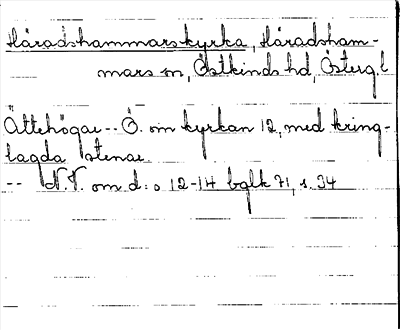 Häradshammarskyrka, Häradsham-
mars sn, Östkinds hd, Österg.l
Ättehögar -- Ö. om kyrkan 12, med kring-
lagda stenar.
-- N.V. om d:o 12-14 bglk 71, s. 34